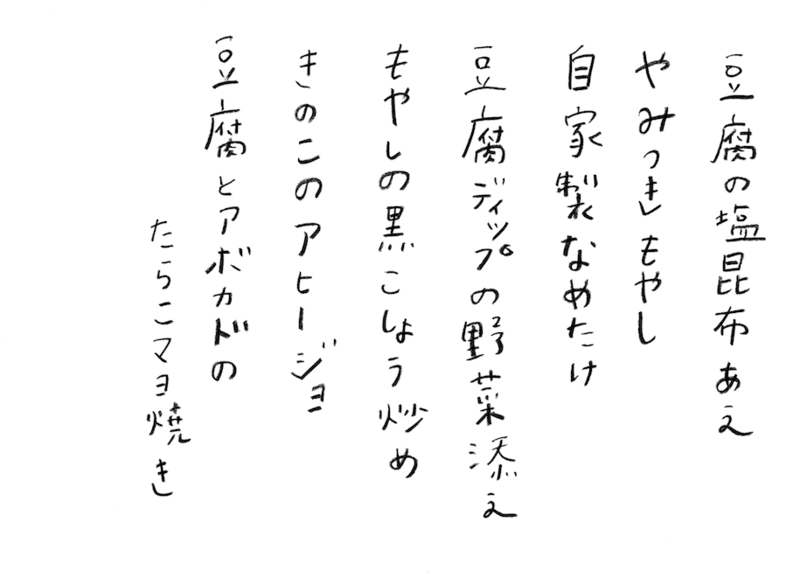 豆腐の塩昆布あえ
やみつきもやし
自家製なめたけ
豆腐ディップの野菜添え
もやしの黒こしょう炒め
きのこのアヒージョ
豆腐とアボカドの
たらこマヨ焼き